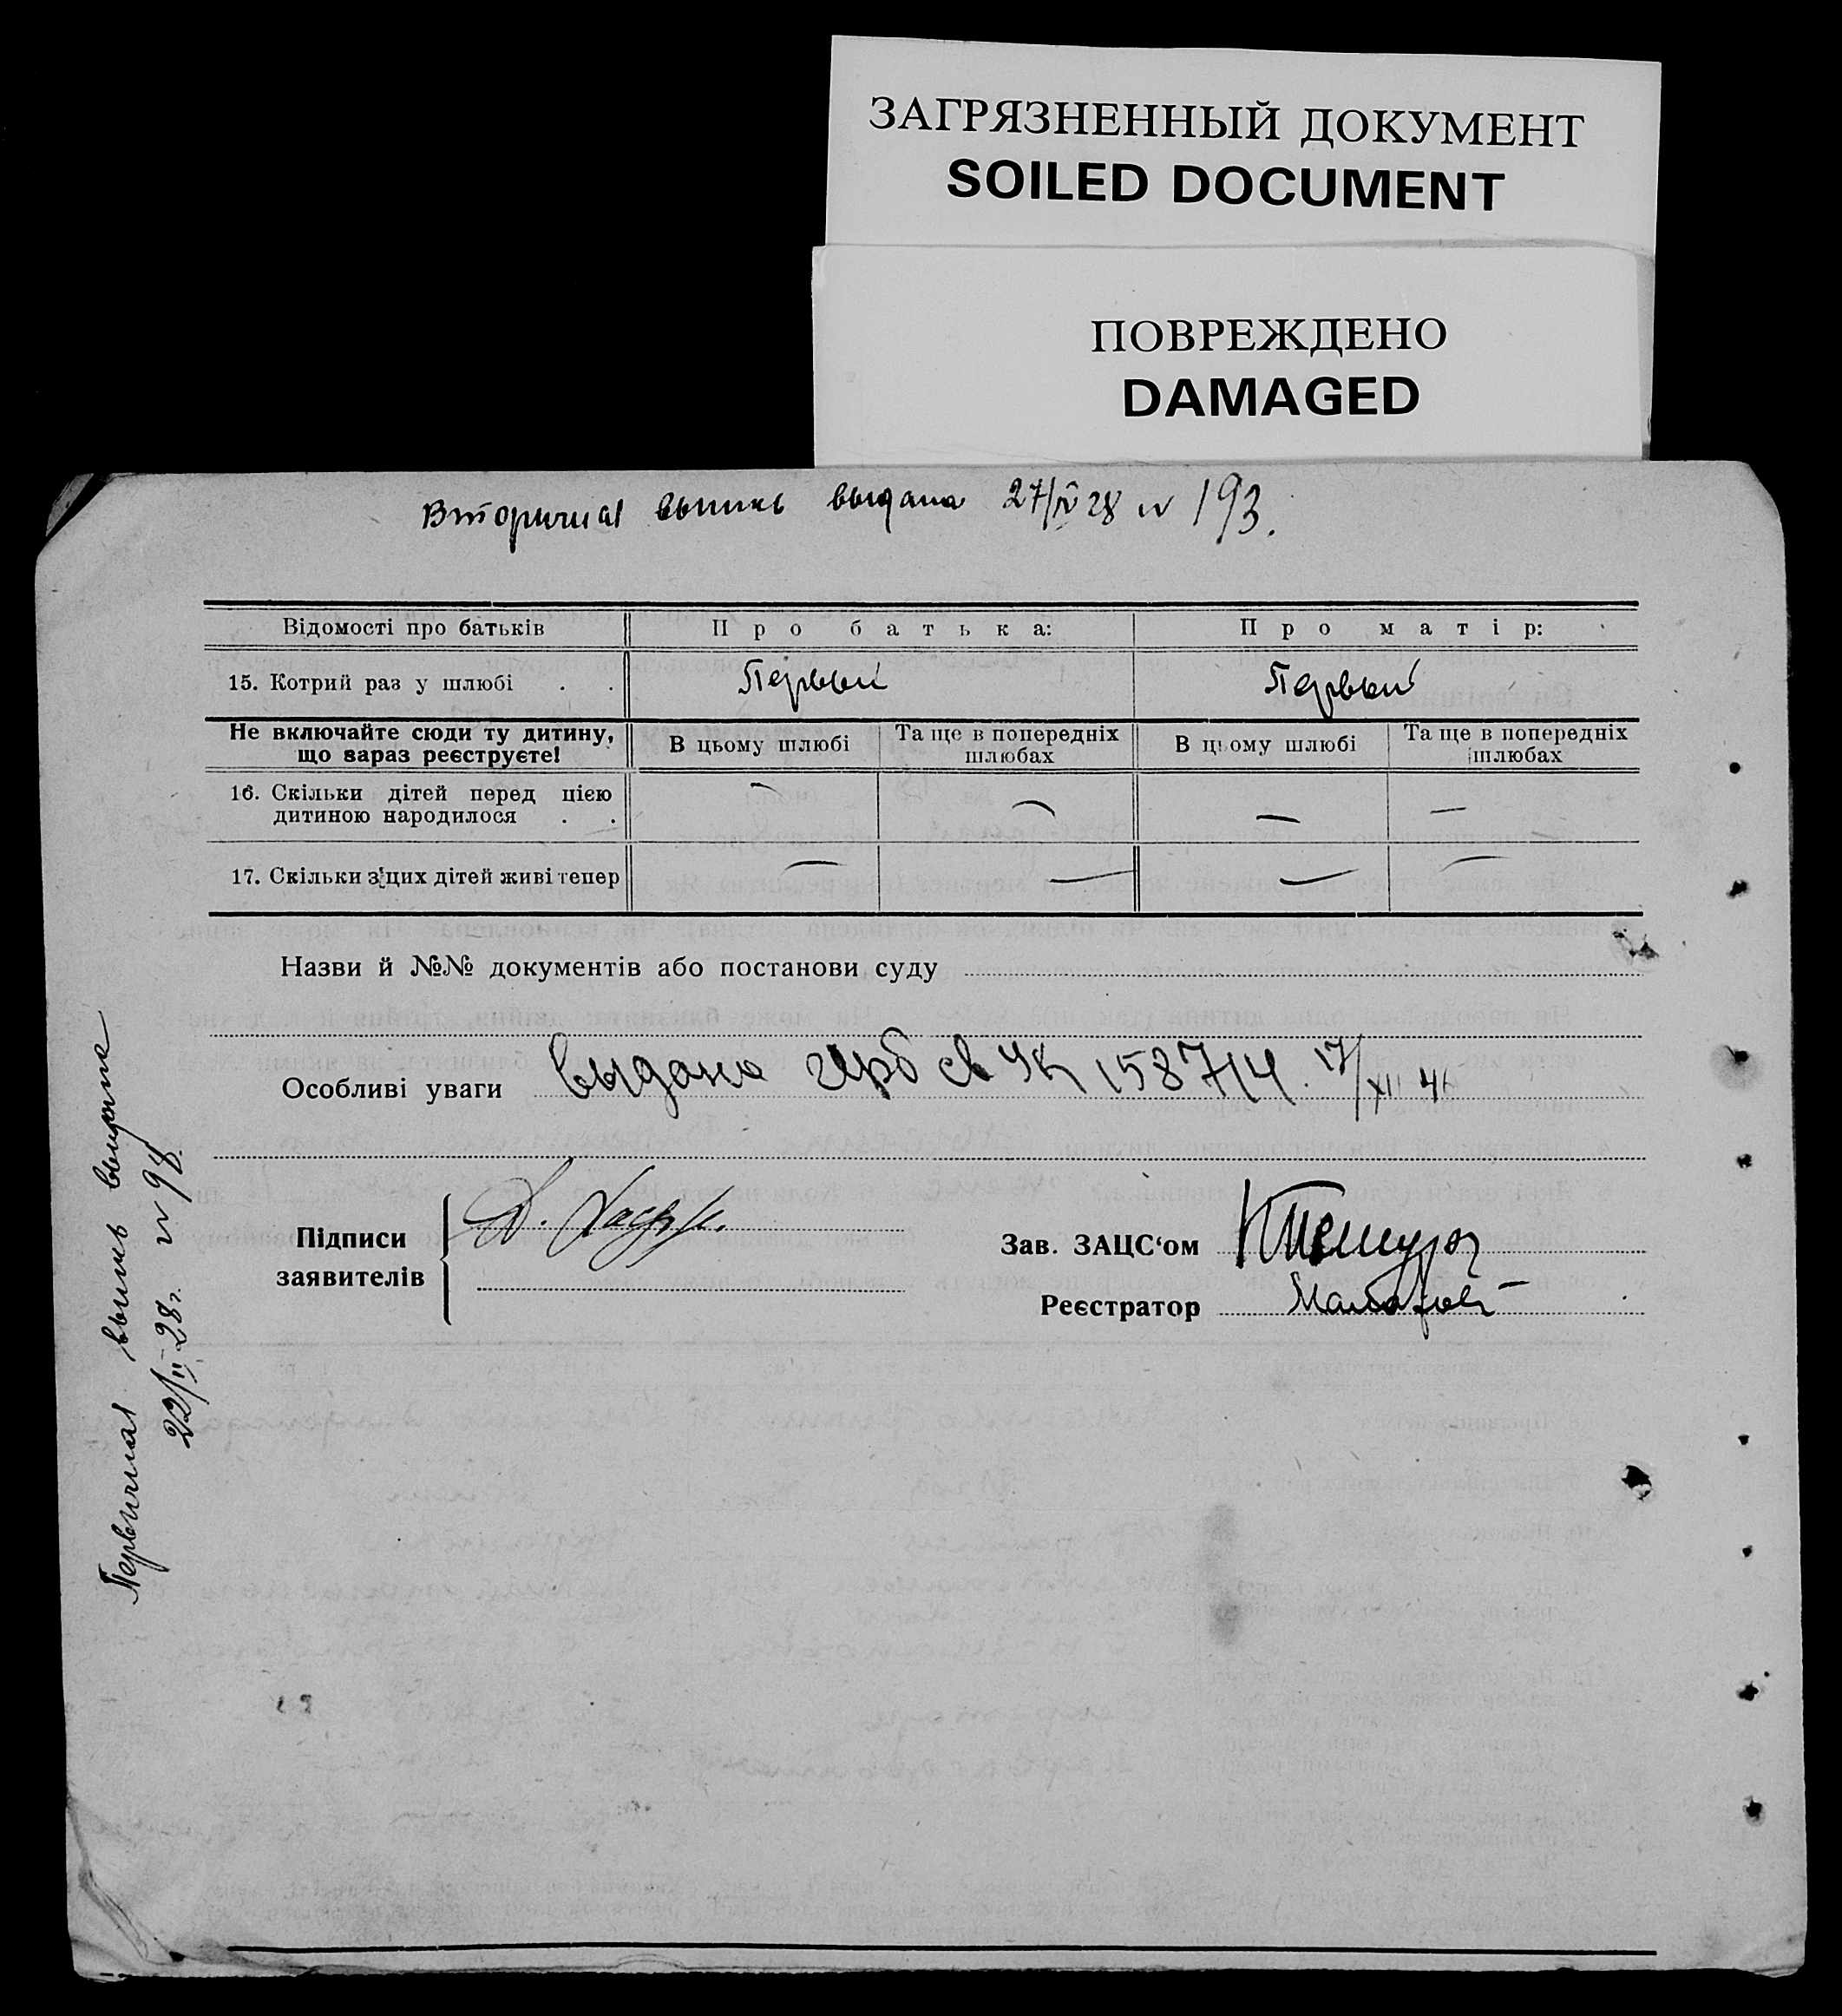 ЗАГРЯЗНЕННЫЙ ДОКУМЕНТ
SOILED DOCUMENT
ПОВРЕЖДЕНО
DAMAGED
Вторичная выпись выдана 27/IV 28 № 193.
Відомості про батьків Про батька: Про матір:
15. Котрий раз у шлюбі . . Первый Первый
Не включайте сюди ту дитину, що зараз реєструєте! В цьому шлюбі Та ще в попередніх шлюбах В цьому шлюбі Та ще в попередніх шлюбах
16. Скільки дітей перед цією
дитиною народилося . . — — — —
17. Скільки з цих дітей живі тепер — — — —
Назви й №№ документів або постанови суду
Особливі уваги выдано герб св УК 158714. 17/XII 46
Підписи
заявителів
Зав. ЗАЦС‘ом
Реєстратор
Первичная выпись выдана
22/II 28 г. № 98.